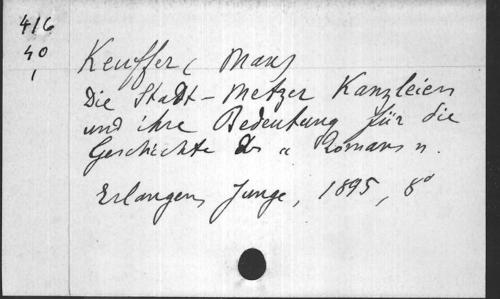 416
40
1
Keuffer (Max)
Die Stadt-Metzer Kanzleien
und ihre Bedeutung für die
Geschichte des "Romans".
Erlangen, Junge, 1895, 8°